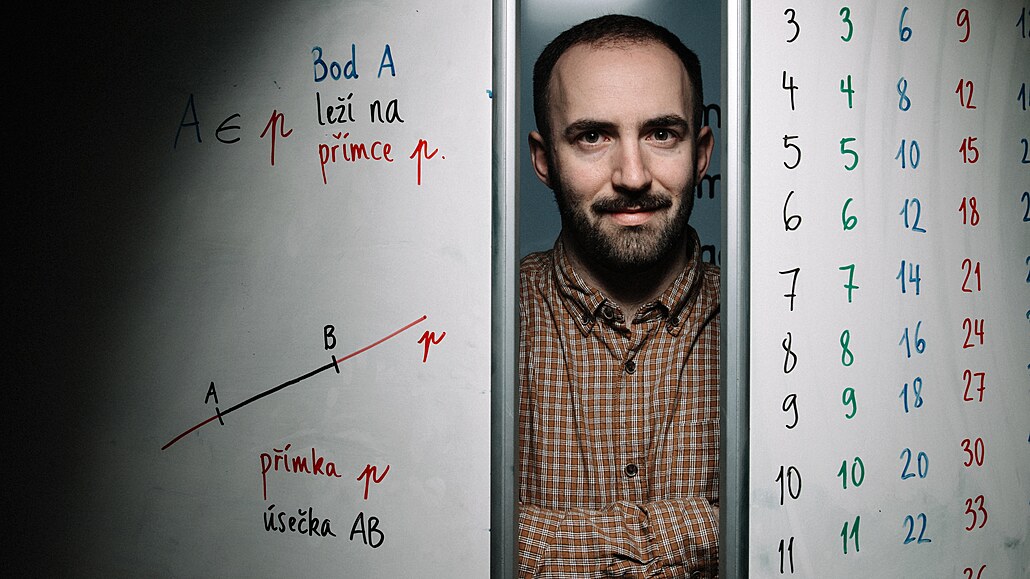 Bod A
A ∈ p leží na
přímce p.
B
p
A
přímka p
úsečka AB
3 3 6 9
4 4 8 12
5 5 10 15
6 6 12 18
7 7 14 21
8 8 16 24
9 9 18 27
10 10 20 30
11 11 22 33